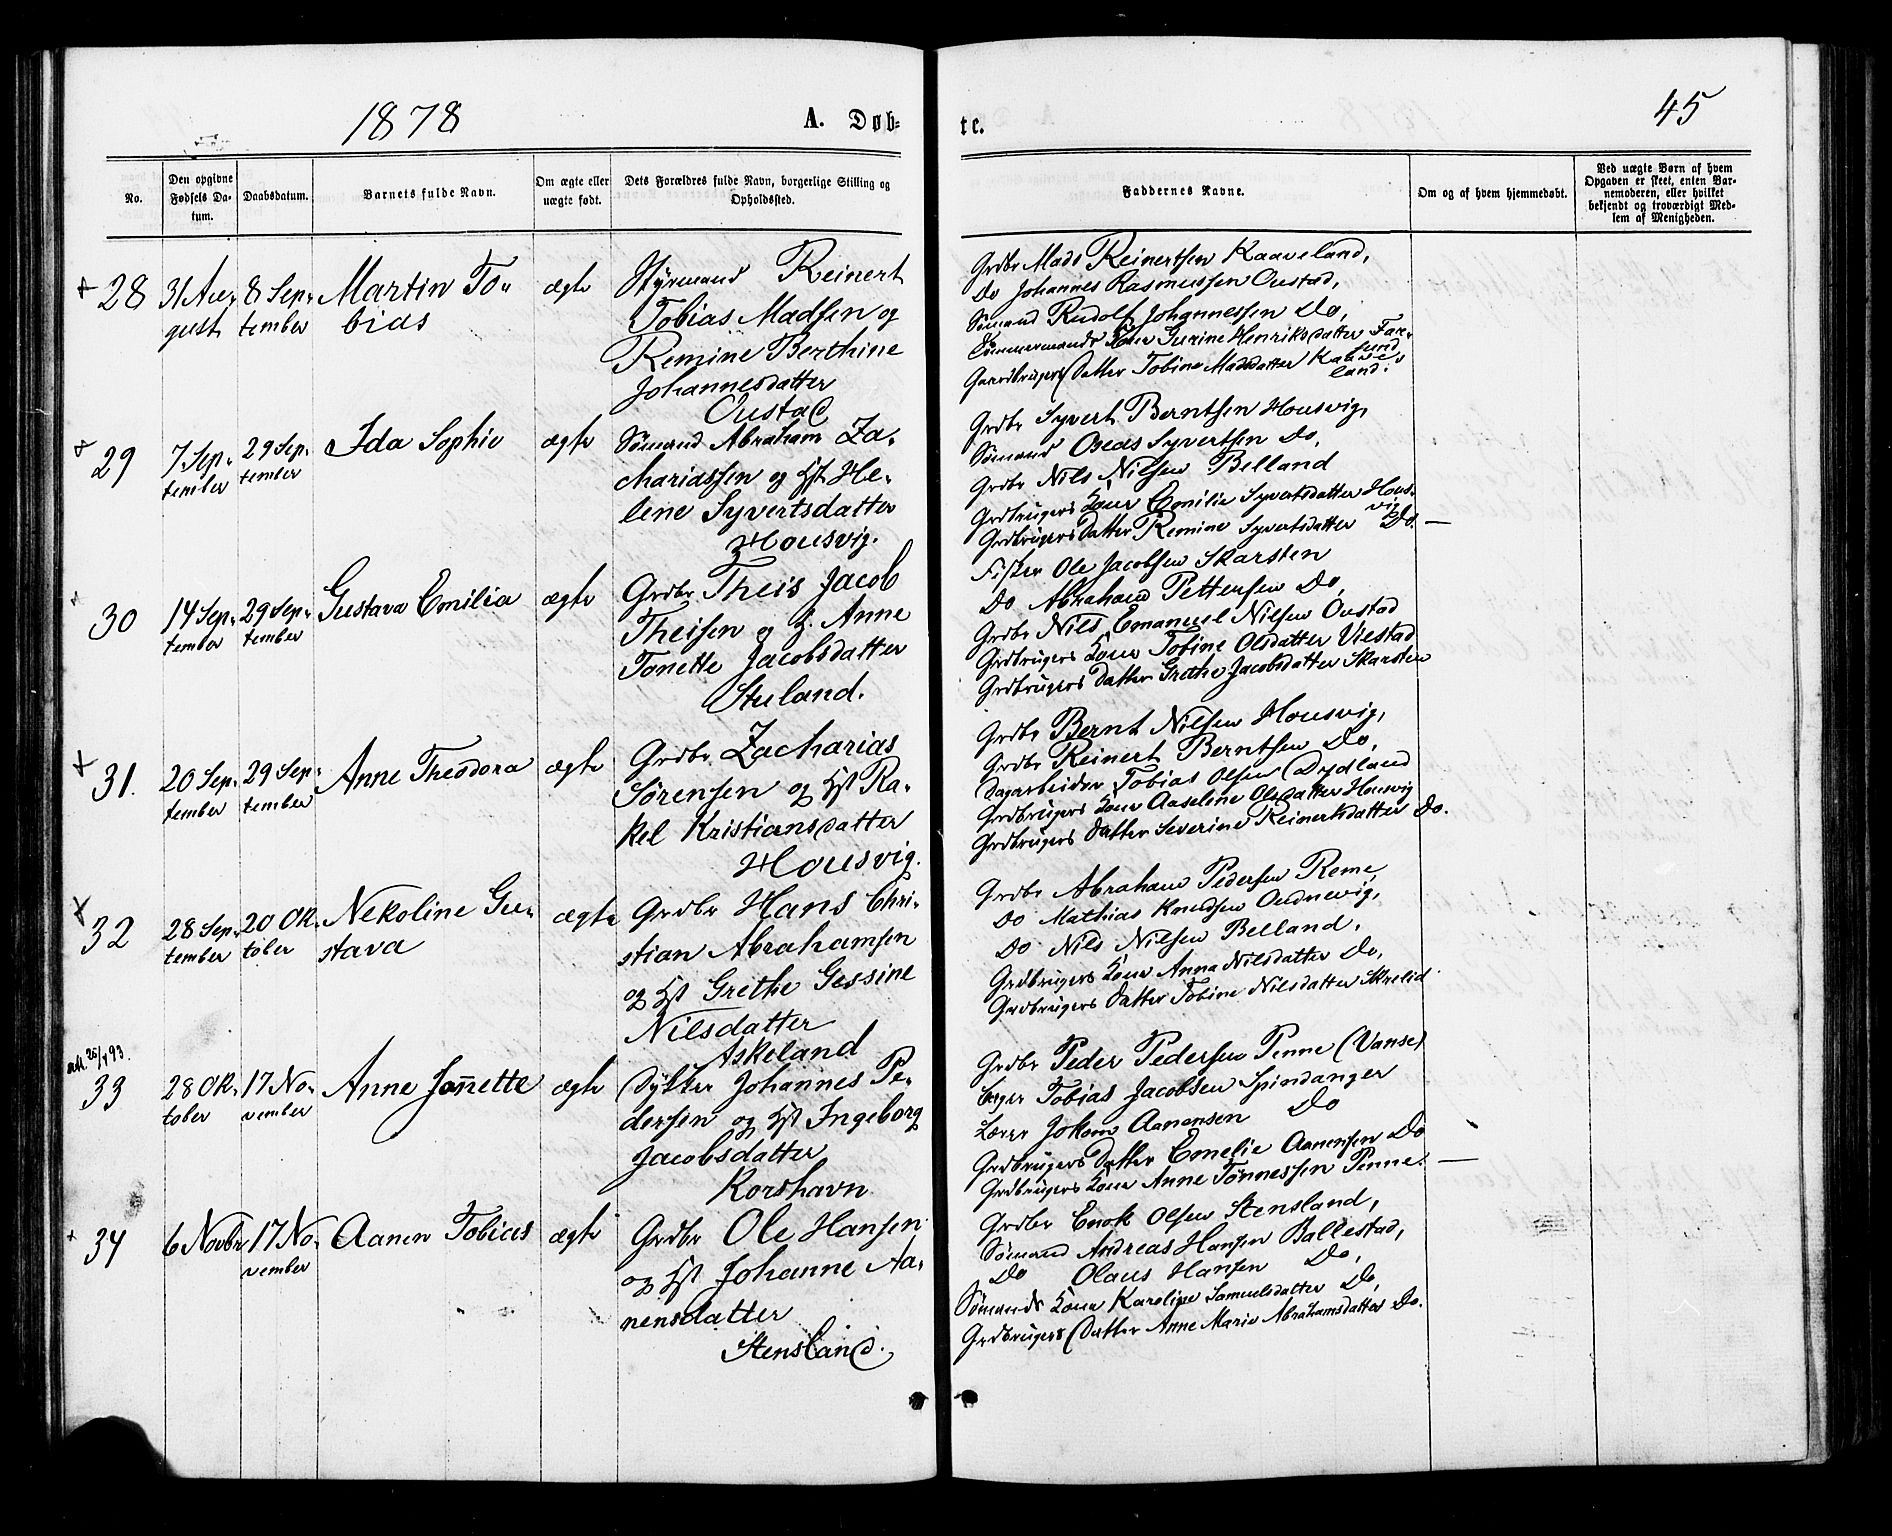 1878
A. Døb-
te.
45
No.
Den opgivne Fødsels Da-tum.
Daabsdatum.
Barnets fulde Navn.
Om ægte eller uægte født.
Dets Forældres fulde Navn, borgerlige Stilling og Opholdssted.
Faddernes Navne.
Om og af hvem hjemmedøbt.
Ved uægte Børn af hvem Opgaven er skeet, enten Bar-nemoderen, eller hvilket bekjendt og troværdigt Med-lem af Menigheden.
28
31 Au-
gust
8 Sep-
tember
Martin To-
bias
ægte
Styrmand Reinert
Tobias Madsen og
Remine Berthine
Johannesdatter
Oustad
Grdbr Mads Reinertsen Kaaveland,
Do Johannes Rasmussen Oustad,
Sømand Rudolf Johannessen Do,
Tømmermands Kone Gurine Henriksdatter Far-
sund,
Gaardbrugers Datter Tobine Madsdatter Kaave-
land.
29
7 Sep-
tember
29 Sep-
tember
Ida Sophie
ægte
Sømand Abraham Za-
chariassen og Hst He-
lene Syvertsdatter
Housvig.
Grdbr Syvert Berntsen Housvig,
Sømand Oseas Syvertsen Do,
Grdbr Nils Nilsen Belland
Grdbrugers Kone Emilie Syvertsdatter Hous-
vig
Grdbrugers Datter Remine Syvertsdatter Do. —
30
14 Sep-
tember
29 Sep-
tember
Gustava Emilia
ægte
Grdbr Theis Jacob
Theisen og H. Anne
Tonette Jacobsdatter
Stuland.
Fisker Ole Jacobsen Skarsten
Do Abraham Pettersen Do,
Grdbr Nils Emanuel Nilsen Oustad
Grdbrugers Kone Tobine Olsdatter Viestad
Grdbrugers Datter Grethe Jacobsdatter Skarsten
31.
20 Sep-
tember
29 Sep-
tember
Anne Theodora
ægte
Grdbr Zacharias
Sørensen og Hst Ra-
kel Kristiansdatter
Housvig.
Grdbr Bernt Nilsen Housvig,
Grdbr Reinert Berntsen Do,
Dagarbeider Tobias Olsen Dydland
Grdbrugers Kone Aaseline Olsdatter Housvig
Grdbrugers Datter Severine Reinertsdatter Do.
32
28 Sep-
tember
20 Ok-
tober
Nekoline Gu-
stava
ægte
Grdbr Hans Chri-
stian Abrahamsen
og Hst Grethe Gessine
Nilsdatter
Askeland
Grdbr Abraham Pedersen Reme,
Do Mathias Knudsen Oudnevig,
Do Nils Nilsen Belland,
Grdbrugers Kone Anna Nilsdatter Do,
Grdbrugers Datter Tobine Nilsdatter Skrelid
33
28 Ok-
tober
17 No-
vember
Anne Jon̄ette
ægte
Johannes Pe-
dersen og Hst Ingeborg
Jacobsdatter
Korshavn
Grdbr Peder Pedersen Penne (Vanse)
Tobias Jacobsen Spindanger
Lærer Jokom Aanensen Do
Grdbrugers Datter Emelie Aanensen Do
Grdbrugers Kone Anne Tønnessen Penne. —
34
6 Novbr
17 No-
vember
Aanen Tobias
ægte
Grdbr Ole Hansen
og Hst Johanne Aa-
nensdatter
Stensland.
Grdbr Enok Olsen Stensland,
Sømand Andreas Hansen Ballestad,
Do Olaus Hansen Do,
Sømands Kone Karoline Samuelsdatter Do,
Grdbrugers Datter Anne Marie Abrahamsdatter Do.